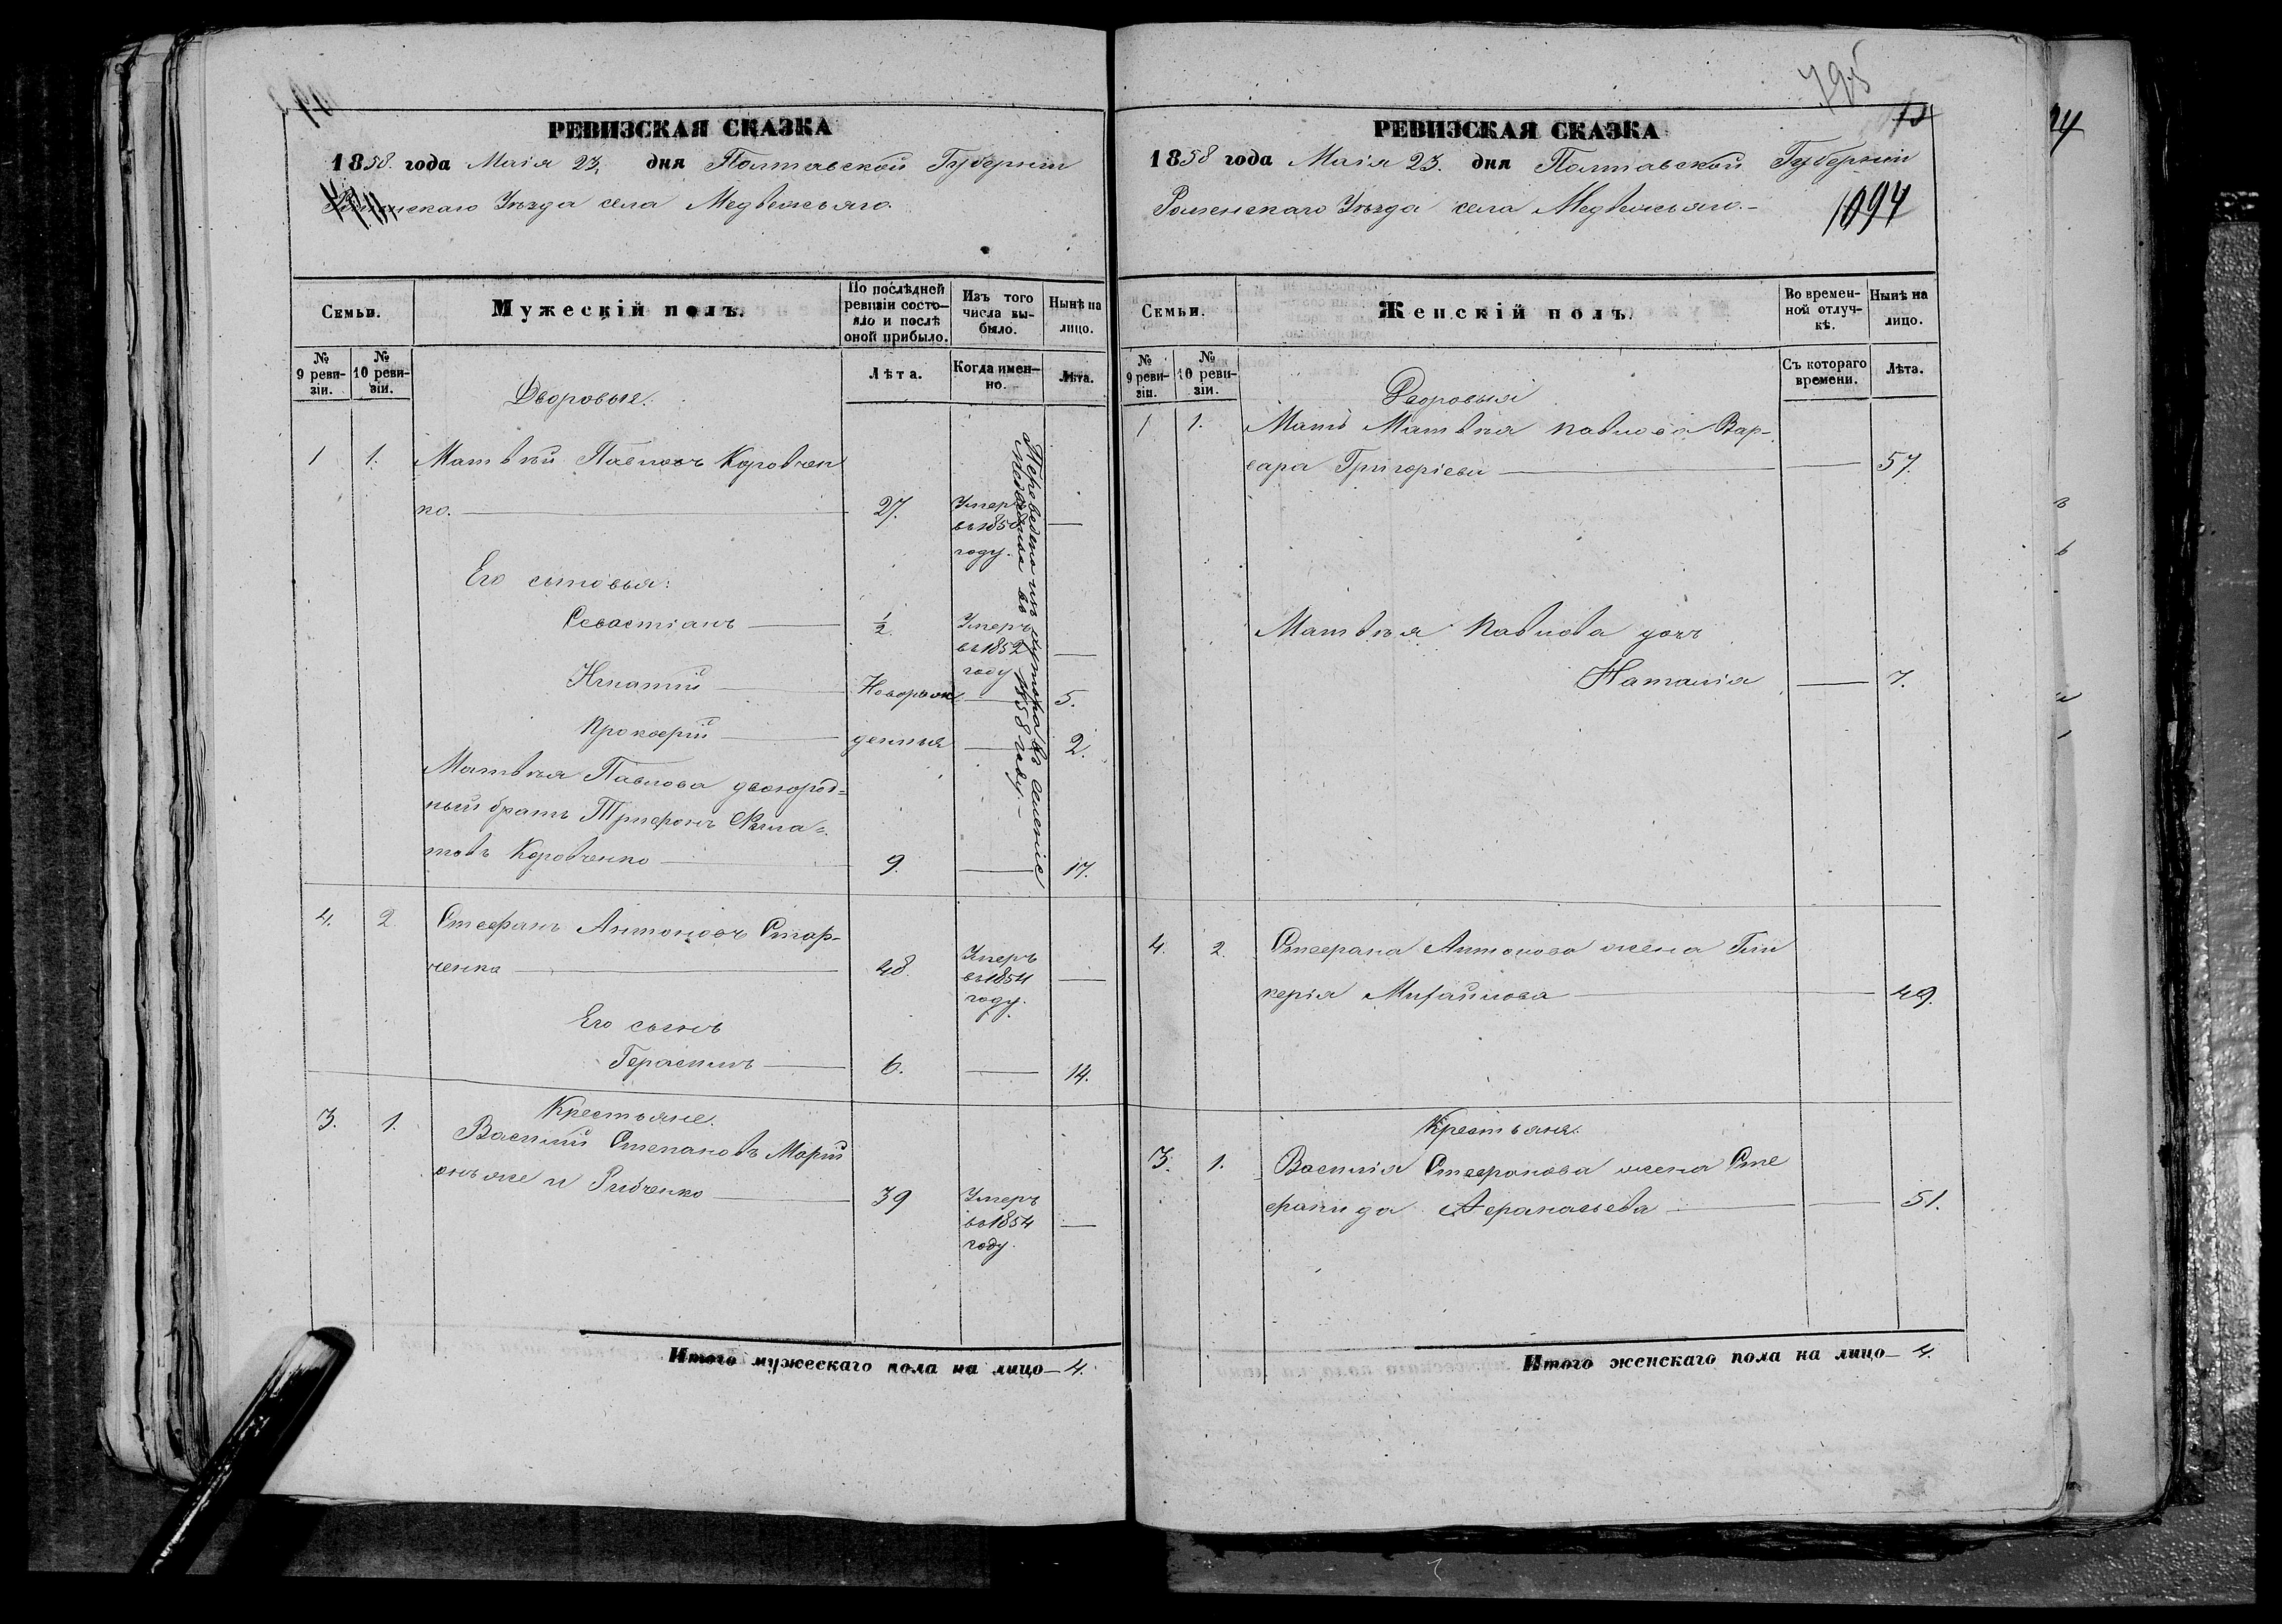 РЕВИЗСКАЯ СКАЗКА
1858. года Маія 23, дня Полтавской Губерніи
Роменскаго Уѣзда села Медвежъяго.
Семьи.
Мужескій полъ.
По послѣдней ревизіи состо-
яло и послѣ оной прибыло.
Изъ того числа вы-
было.
Нынѣ на лицо.
№ 9 реви-
зіи.
№ 10 реви-
зіи.
Лѣта.
Когда имен-
но.
Лѣта.
Дворовые.
1 1. Матвѣй Павловъ Коровчен
ко. 27. Умеръ
въ 1850
году.
Его сыновья:
Севастіанъ ½. Умеръ
въ 1852
году
Игнатій Новорож 5.
Прокофій денныя 2.
Матвѣя Павлова двоюрод=
ный братъ Трифонъ
Коровченко 9. 17.
Переведены изъ хутора въ селеніе
въ 1858 году.
4. 2. Стефанъ Антоновъ Стар-
ченко 48. Умеръ
въ 1854
году.
Его сынъ
Герасимъ 6. 14.
Крестьяне.
3. 1. Василий Степановъ
онъ же и 39 Умеръ
въ 1854
году.
Итого мужескаго пола на лицо—4.
795
1094
РЕВИЗСКАЯ СКАЗКА
1858 года Маія 23. дня Полтавской Губерніи
Роменскаго Уѣзда села Медвежьяго.
Семьи.
Женскій полъ.
Во времен-
ной отлуч-
кѣ.
Нынѣ на лицо.
№ 9 реви-
зіи.
№ 10 реви-
зіи.
Съ котораго
времени.
Лѣта.
Дворовыя
1 1. Мать Матвѣя Павлова Вар-
вара Григоріева 57.
Матвѣя Павлова дочь
Наталія 7.
4. 2. Стефана Антонова жена Гли
керія Михайлова 49.
Крестьяне.
3. 1. Василія Стефанова жена Сте
фанида Афанасьева 51.
Итого женскаго пола на лицо—4.